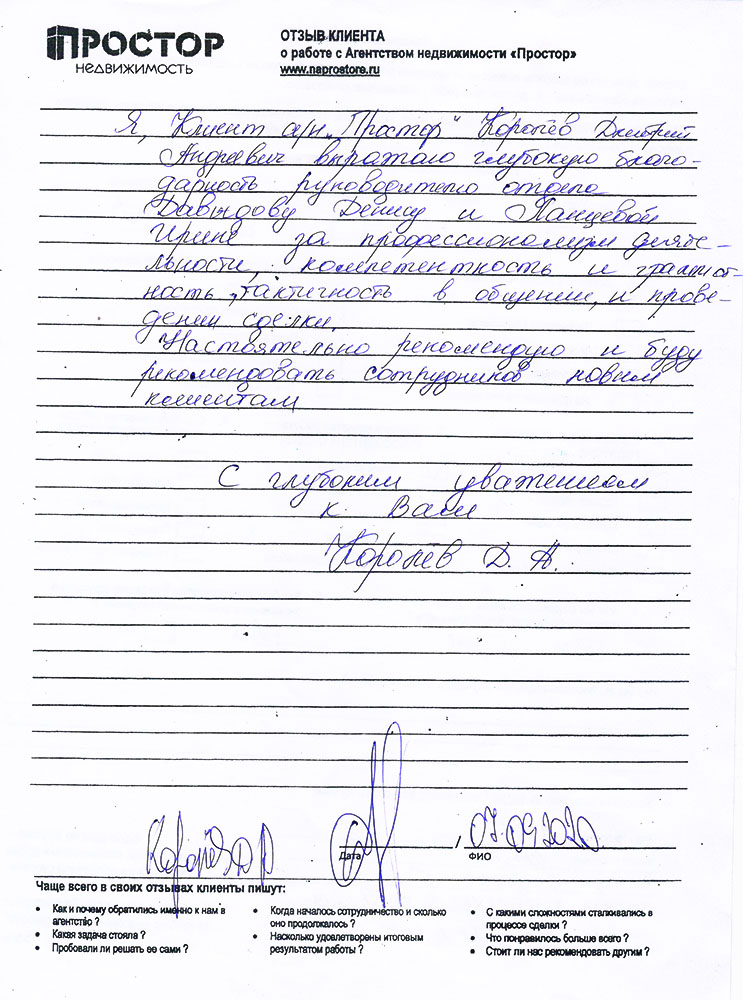 ПРОСТОР
НЕДВИЖИМОСТЬ
ОТЗЫВ КЛИЕНТА
о работе с Агентством недвижимости «Простор»
www.naprostore.ru
Я, Клиент а/н „Простор" Королёв Дмитрий
Андреевич выражаю глубокую благо-
дарность руководителю отдела
Давыдову Денису и Панцевой
Ирине за профессионализм деяте-
льности, компетентность и грамот-
ность, тактичность в общении, и прове-
дении сделки.
Настоятельно рекомендую и буду
рекомендовать сотрудников новым
клиентам
С глубоким уважением
к Вам
Королёв Д. А.
07.09.2020
Дата
/
ФИО
Чаще всего в своих отзывах клиенты пишут:
• Как и почему обратились именно к нам в
агентство ?
• Какая задача стояла ?
• Пробовали ли решать ее сами ?
• Когда началось сотрудничество и сколько
оно продолжалось ?
• Насколько удовлетворены итоговым
результатом работы ?
• С какими сложностями сталкивались в
процессе сделки ?
• Что понравилось больше всего ?
• Стоит ли нас рекомендовать другим ?